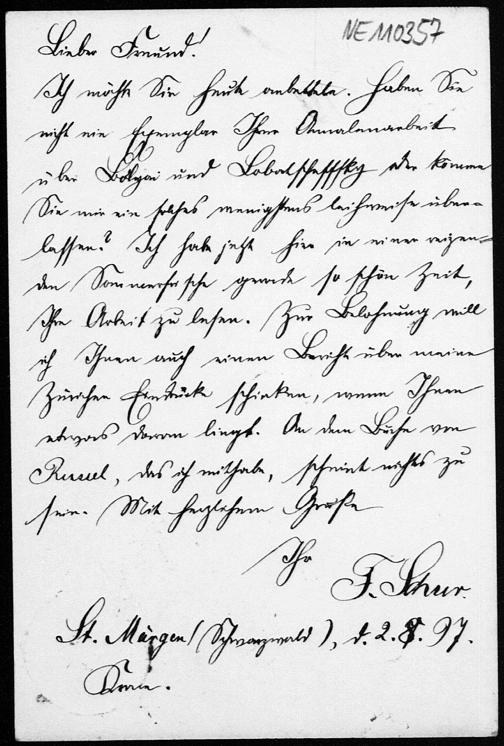 NE110357
Lieber Freund!
Ich möchte Sie heute anbetteln. Haben Sie
nicht ein Exemplar Ihrer Annalenarbeit
über Bólyai und Lobatscheffsky oder können
Sie mir ein solches wenigstens leihweise über-
lassen? Ich habe jetzt hier in einer reizen-
den Sommerfrische gerade so schön Zeit,
Ihre Arbeit zu lesen. Zur Belohnung will
ich Ihnen auch einen Bericht über meine
Züricher Eindrücke schicken, wenn Ihnen
etwas daran liegt. An dem Buche von
Russel, das ich mithabe, scheint nichts zu
sein. Mit herzlichem Gruße
Ihr
F. Schur.
St. Märgen (Schwarzwald), d. 2. 8. 97.
Krone.